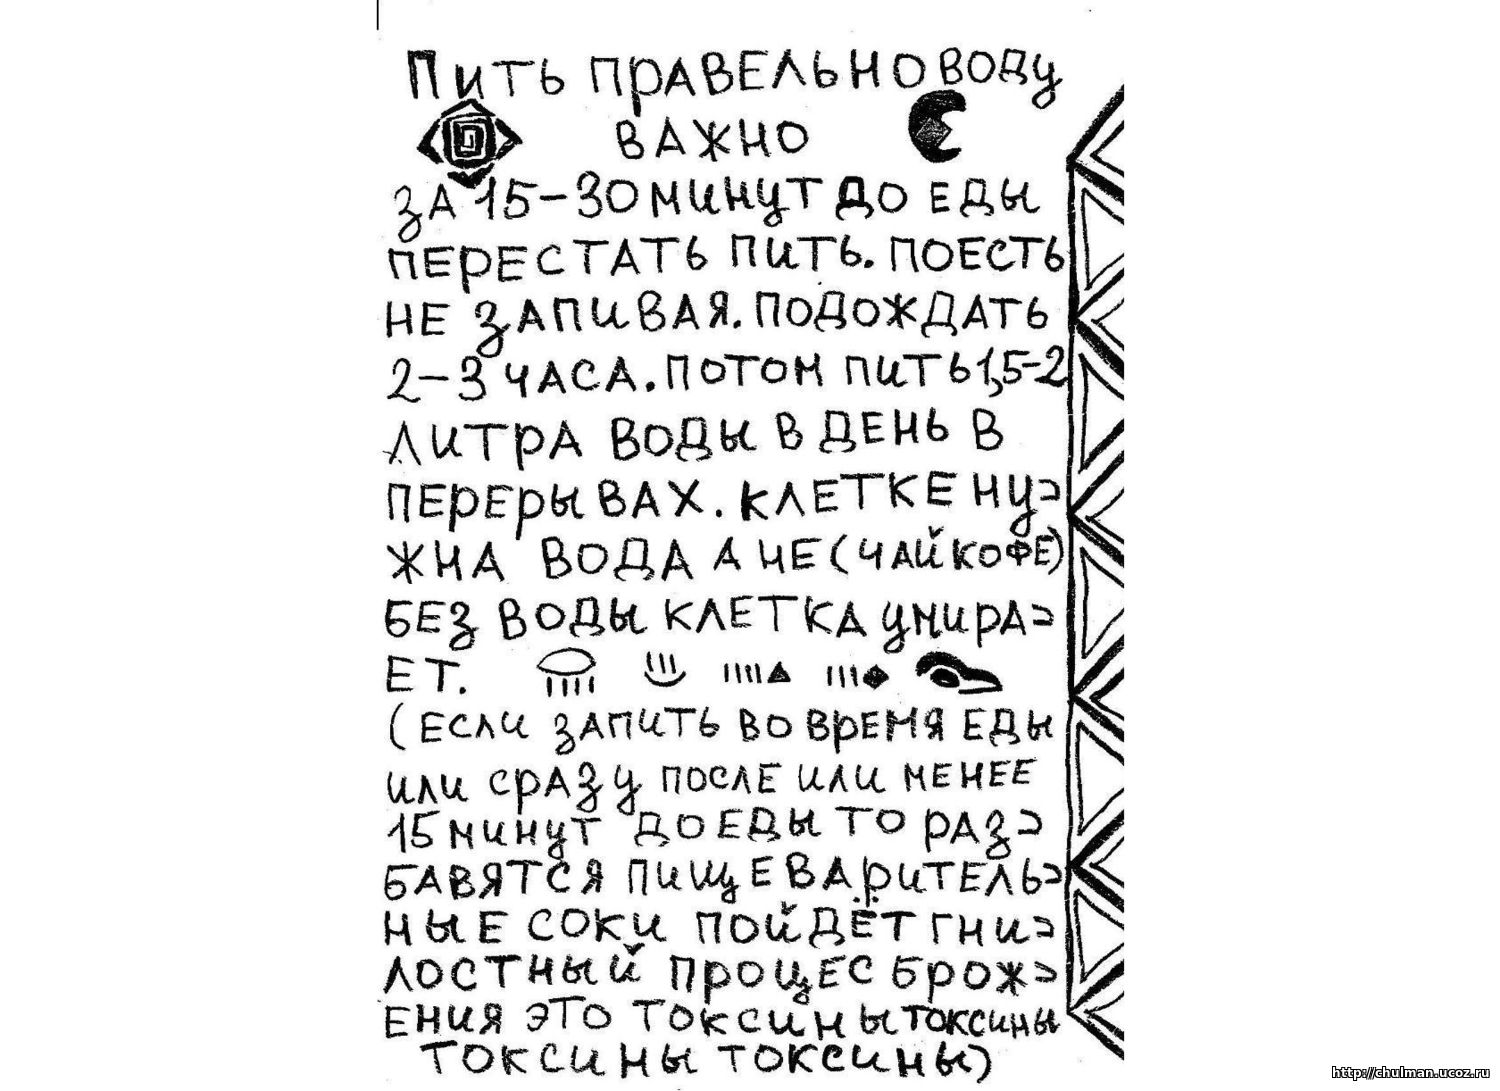 Пить правельно воду
важно
за 15-30 минут до еды
перестать пить. поесть
не запивая. подождать
2-3 часа. потом пить 1,5-2
литра воды в день в
перерывах. клетке ну=
жна вода а не (чай кофе)
без воды клетка умира=
ет.
(если запить во время еды
или сразу после или менее
15 минут до еды то раз=
бавятся пищеваритель=
ные соки пойдёт гни=
лостный процес брож=
ения это токсины токсины
токсины токсины)
http://chulman.ucoz.ru